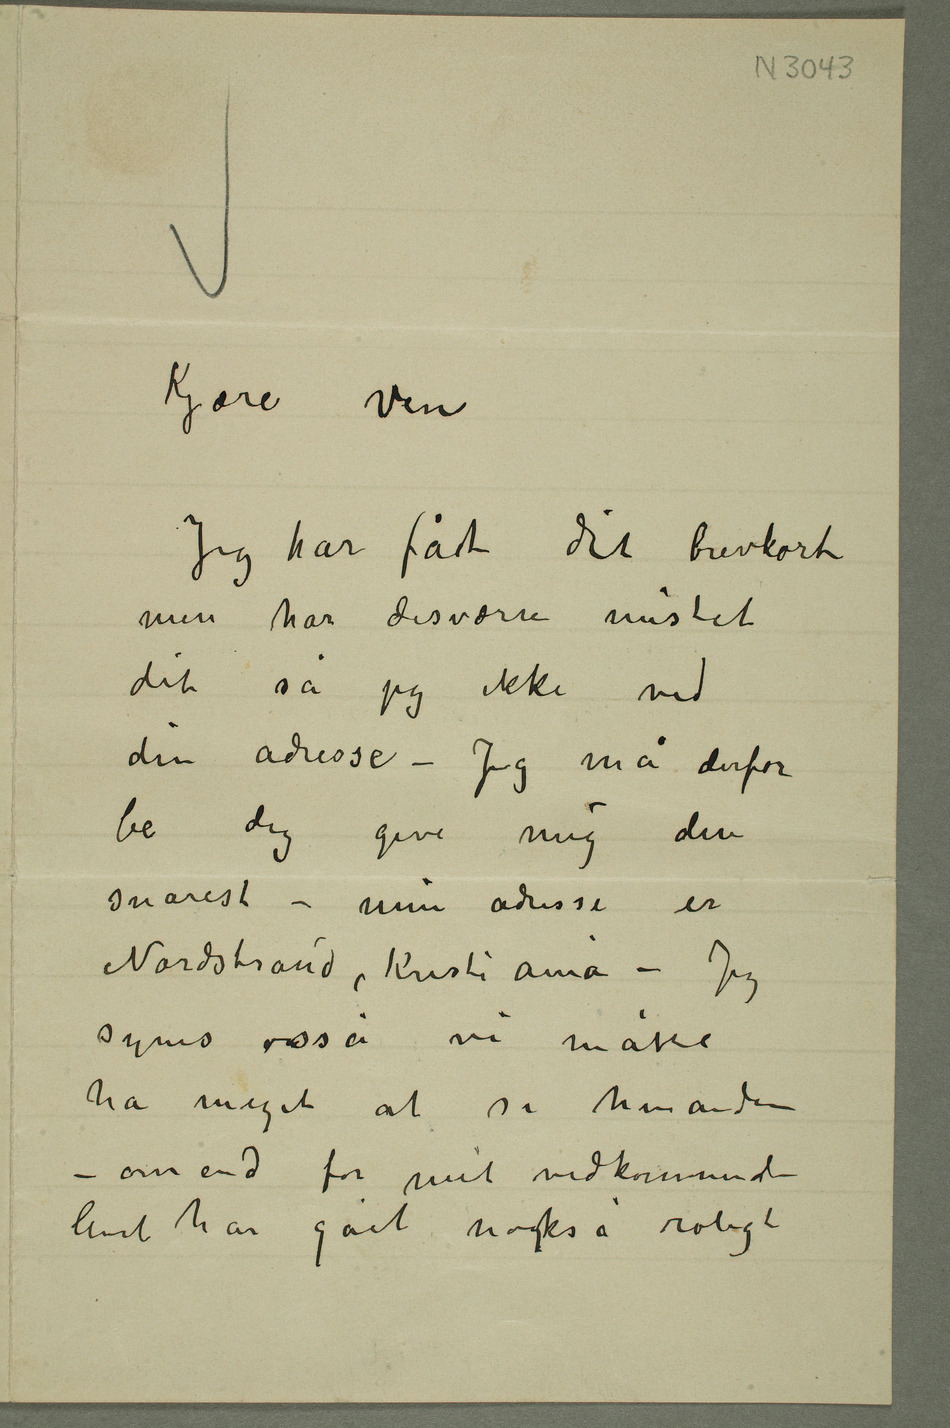 N 3043
Kjære Ven
Jeg har fåt dit brevkort
men har desværre mistet
det så jeg ikke ved
din adresse – Jeg må derfor
be dig give mig den
snarest – min adresse er
Nordstrand, Kristiania – Jeg
synes osså vi måtte
ha meget at si hinanden
– om end for mit vedkommende
livet har gåt nokså roligt